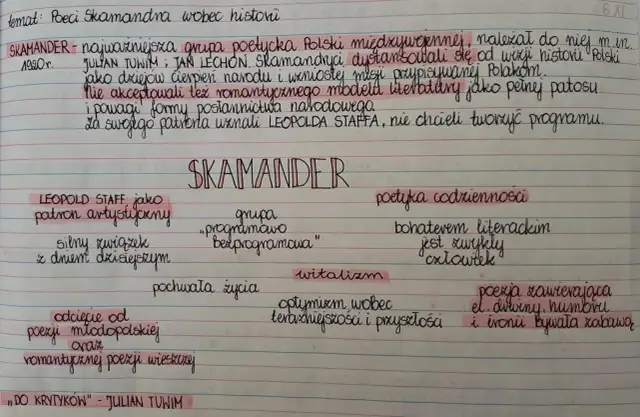 temat: Poeci Skamandra wobec historii
6 XI
SKAMANDER - najważniejsza grupa poetycka Polski międzywojennej, należał do niej m.in.
1920r. JULIAN TUWIM i JAN LECHOŃ. Skamandryci dystansowali się od wizji historii Polski
jako dziejów cierpień narodu i wzniosłej misji przypisywanej Polakom.
Nie akceptowali też romantycznego modelu literatury jako pełnej patosu
i powagi formy posłannictwa narodowego.
Za swojego patrona uznali LEOPOLDA STAFFA, nie chcieli tworzyć programu.
SKAMANDER
LEOPOLD STAFF jako
patron artystyczny
grupa
„programowo
bezprogramowa"
poetyka codzienności
bohaterem literackim
jest zwykły
człowiek
silny związek
z dniem dzisiejszym
witalizm
pochwała życia
optymizm wobec
teraźniejszości i przyszłości
poezja zawierająca
el. drwiny, humoru
i ironii bywała zabawą
odcięcie od
poezji młodopolskiej
oraz
romantycznej poezji wieszczej
„DO KRYTYKÓW" - JULIAN TUWIM